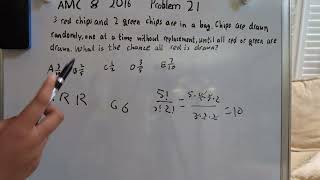 AMC 8 2016 Problem 21
3 red chips and 2 green chips are in a bag. Chips are drawn
randomly, one at a time without replacement, until all red or green are
drawn. What is the chance all red is drawn?
C 1/2 E 7/10
R R G G 5!/3!2! = =10